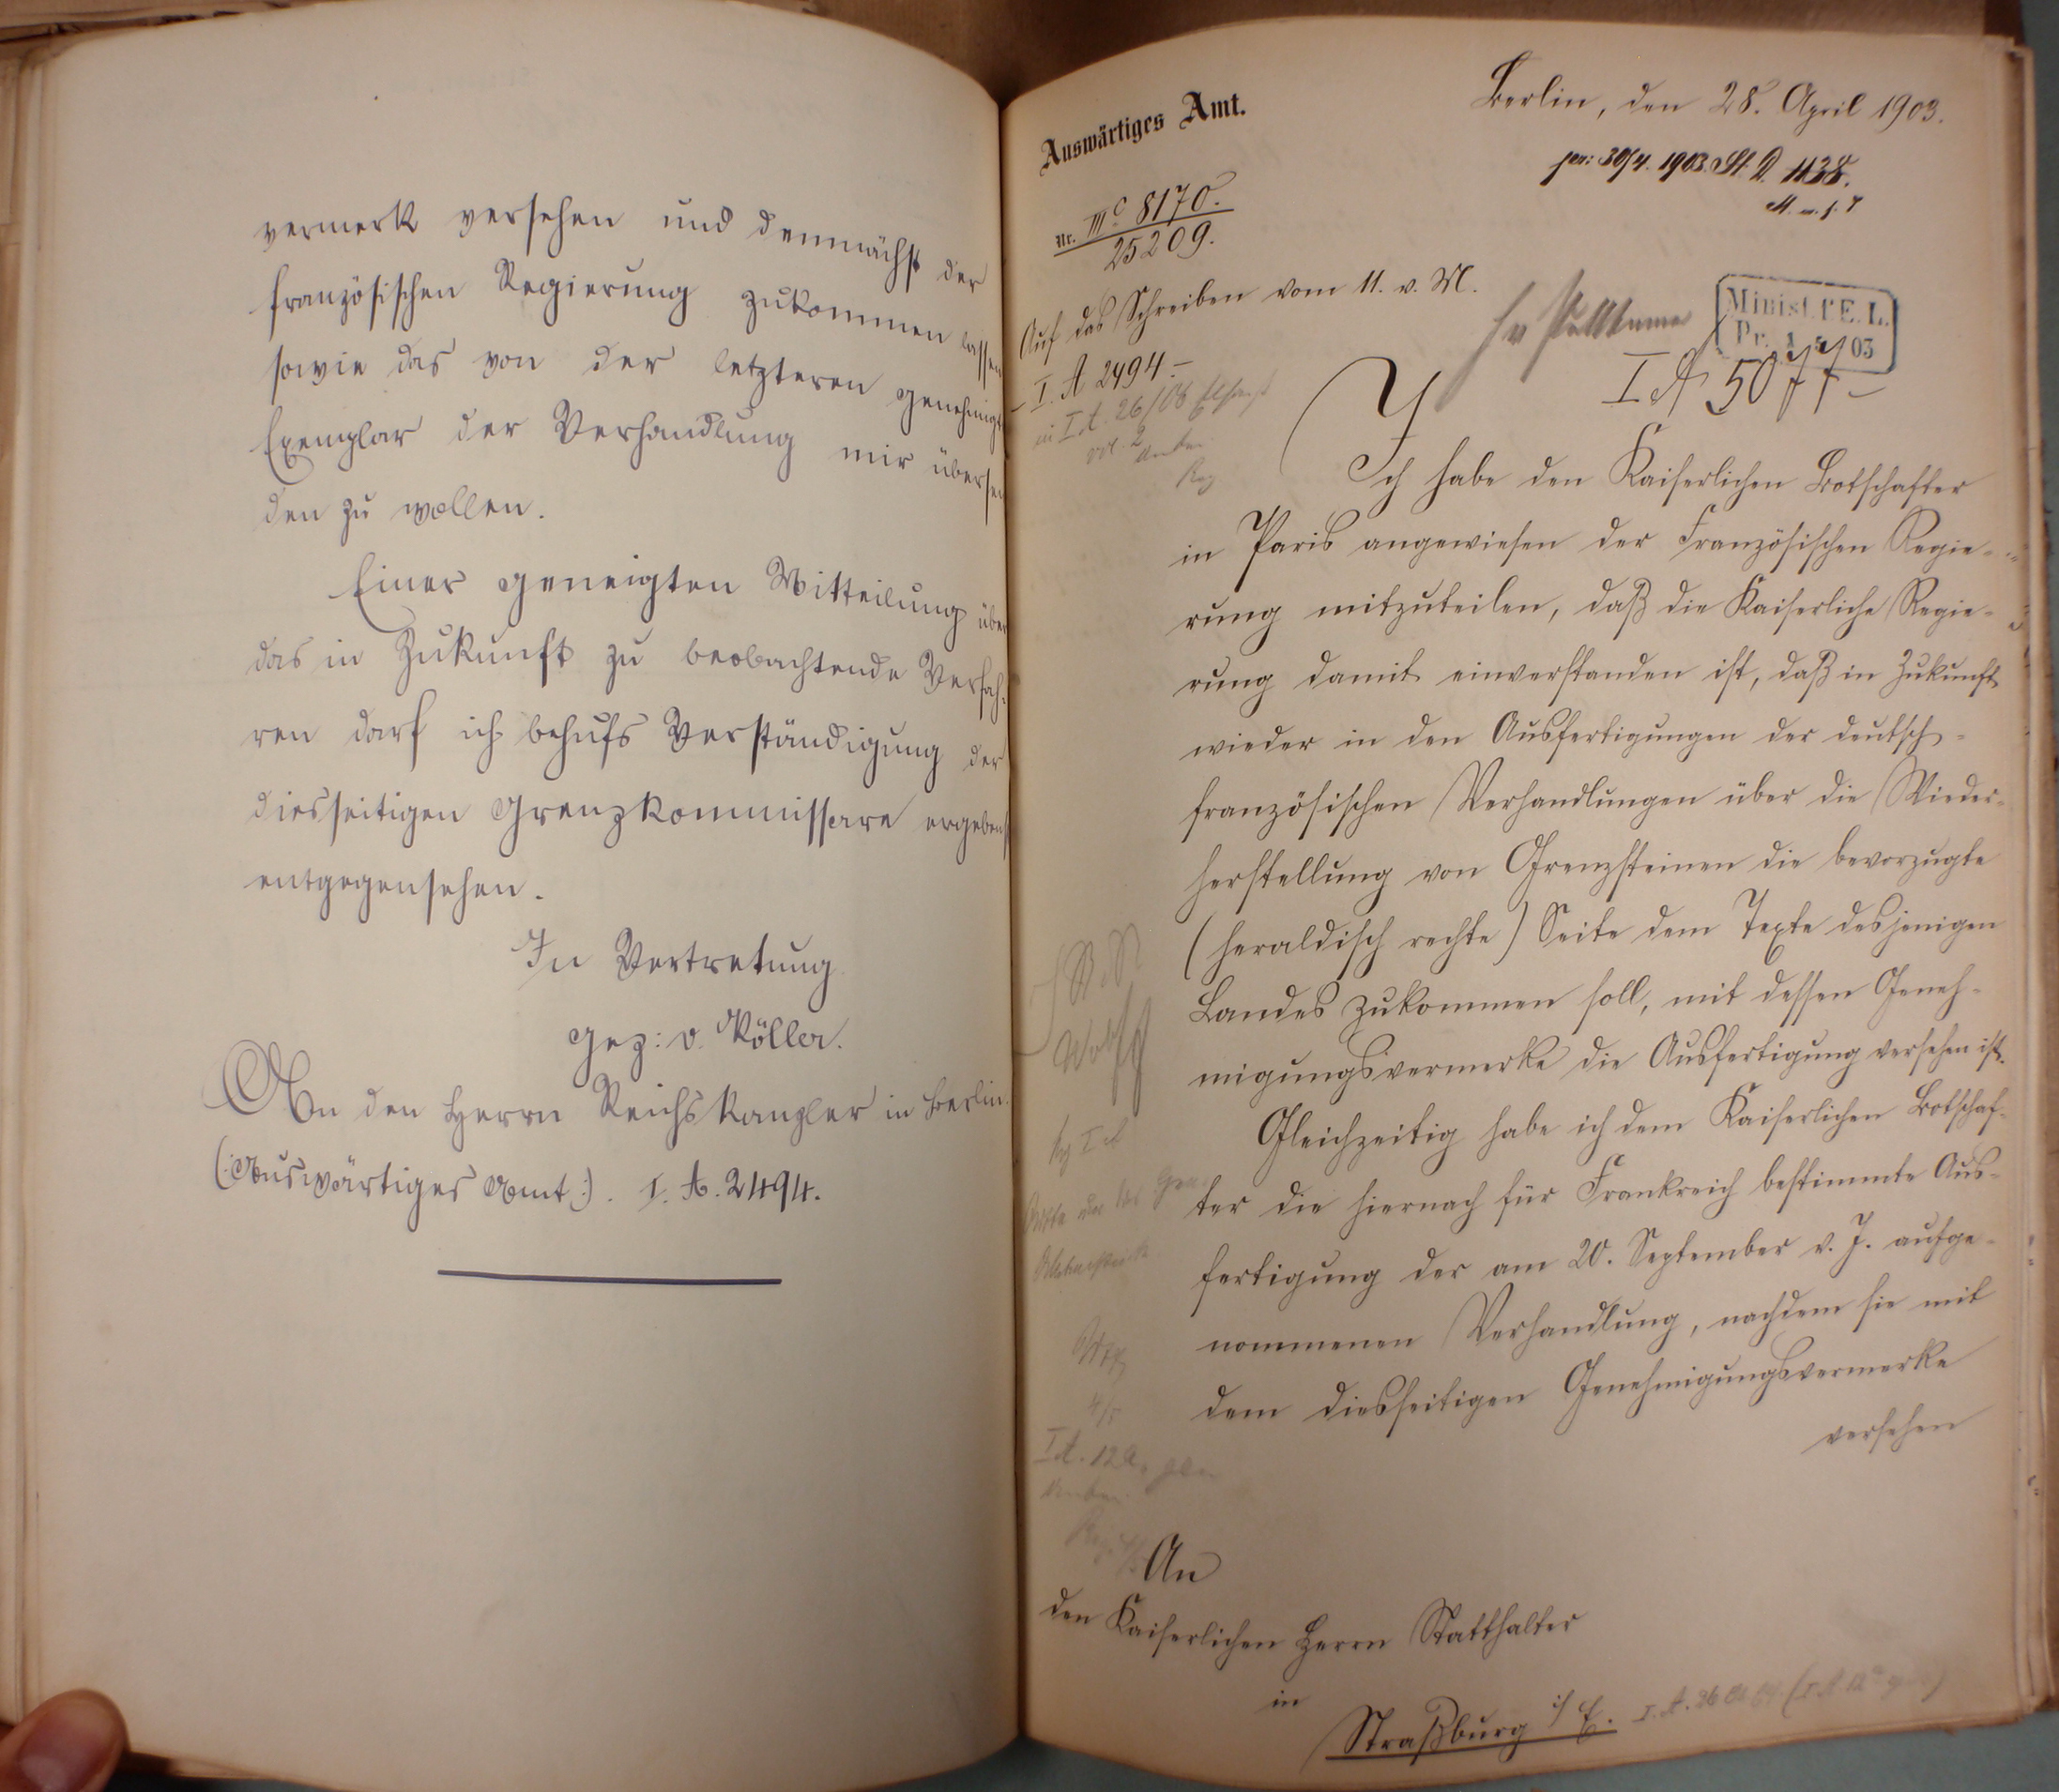 vermerk versehen und demnächst der
französischen Regierung zukommen lassen
sowie das von der letzteren genehmigte
Exemplar der Verhandlung mir übersen
den zu wollen.
Einer geneigten Mitteilung über
das in Zukunft zu beobachtende Verfah-
ren darf ich behufs Verständigung der
diesseitigen Grenzkommissare ergebenst
entgegensehen.
In Vertretung
gez: v. Köller.
An den Herrn Reichskanzler in Berlin.
(:Auswärtiges Amt:). I. A. 2494.
Auswärtiges Amt.
Nr. III c 8170.
25209.
Berlin, den 28. April 1903.
pr: 30/4. 1903. St. D. 1138.
Auf das Schreiben vom 11. v. M.
– I. A 2494. –
Minist. f. E. L.
Pr. 1 5 03
I A 5077 –
Ich habe den Kaiserlichen Botschafter
in Paris angewiesen der Französischen Regie-
rung mitzuteilen, daß die Kaiserliche Regie-
rung damit einverstanden ist, daß in Zukunft
wieder in den Ausfertigungen der deutsch-
französischen Verhandlungen über die Wieder-
herstellung von Grenzsteinen die bevorzugte
(heraldisch rechte) Seite dem Texte desjenigen
Landes zukommen soll, mit dessen Geneh-
migungsvermerke die Ausfertigung versehen ist.
Gleichzeitig habe ich dem Kaiserlichen Botschaf-
ter die hiernach für Frankreich bestimmte Aus-
fertigung der am 20. September v. J. aufge-
nommenen Verhandlung, nachdem sie mit
dem diesseitigen Genehmigungsvermerke
versehen
4/5
An
den Kaiserlichen Herrn Statthalter
in
Straßburg i/E.